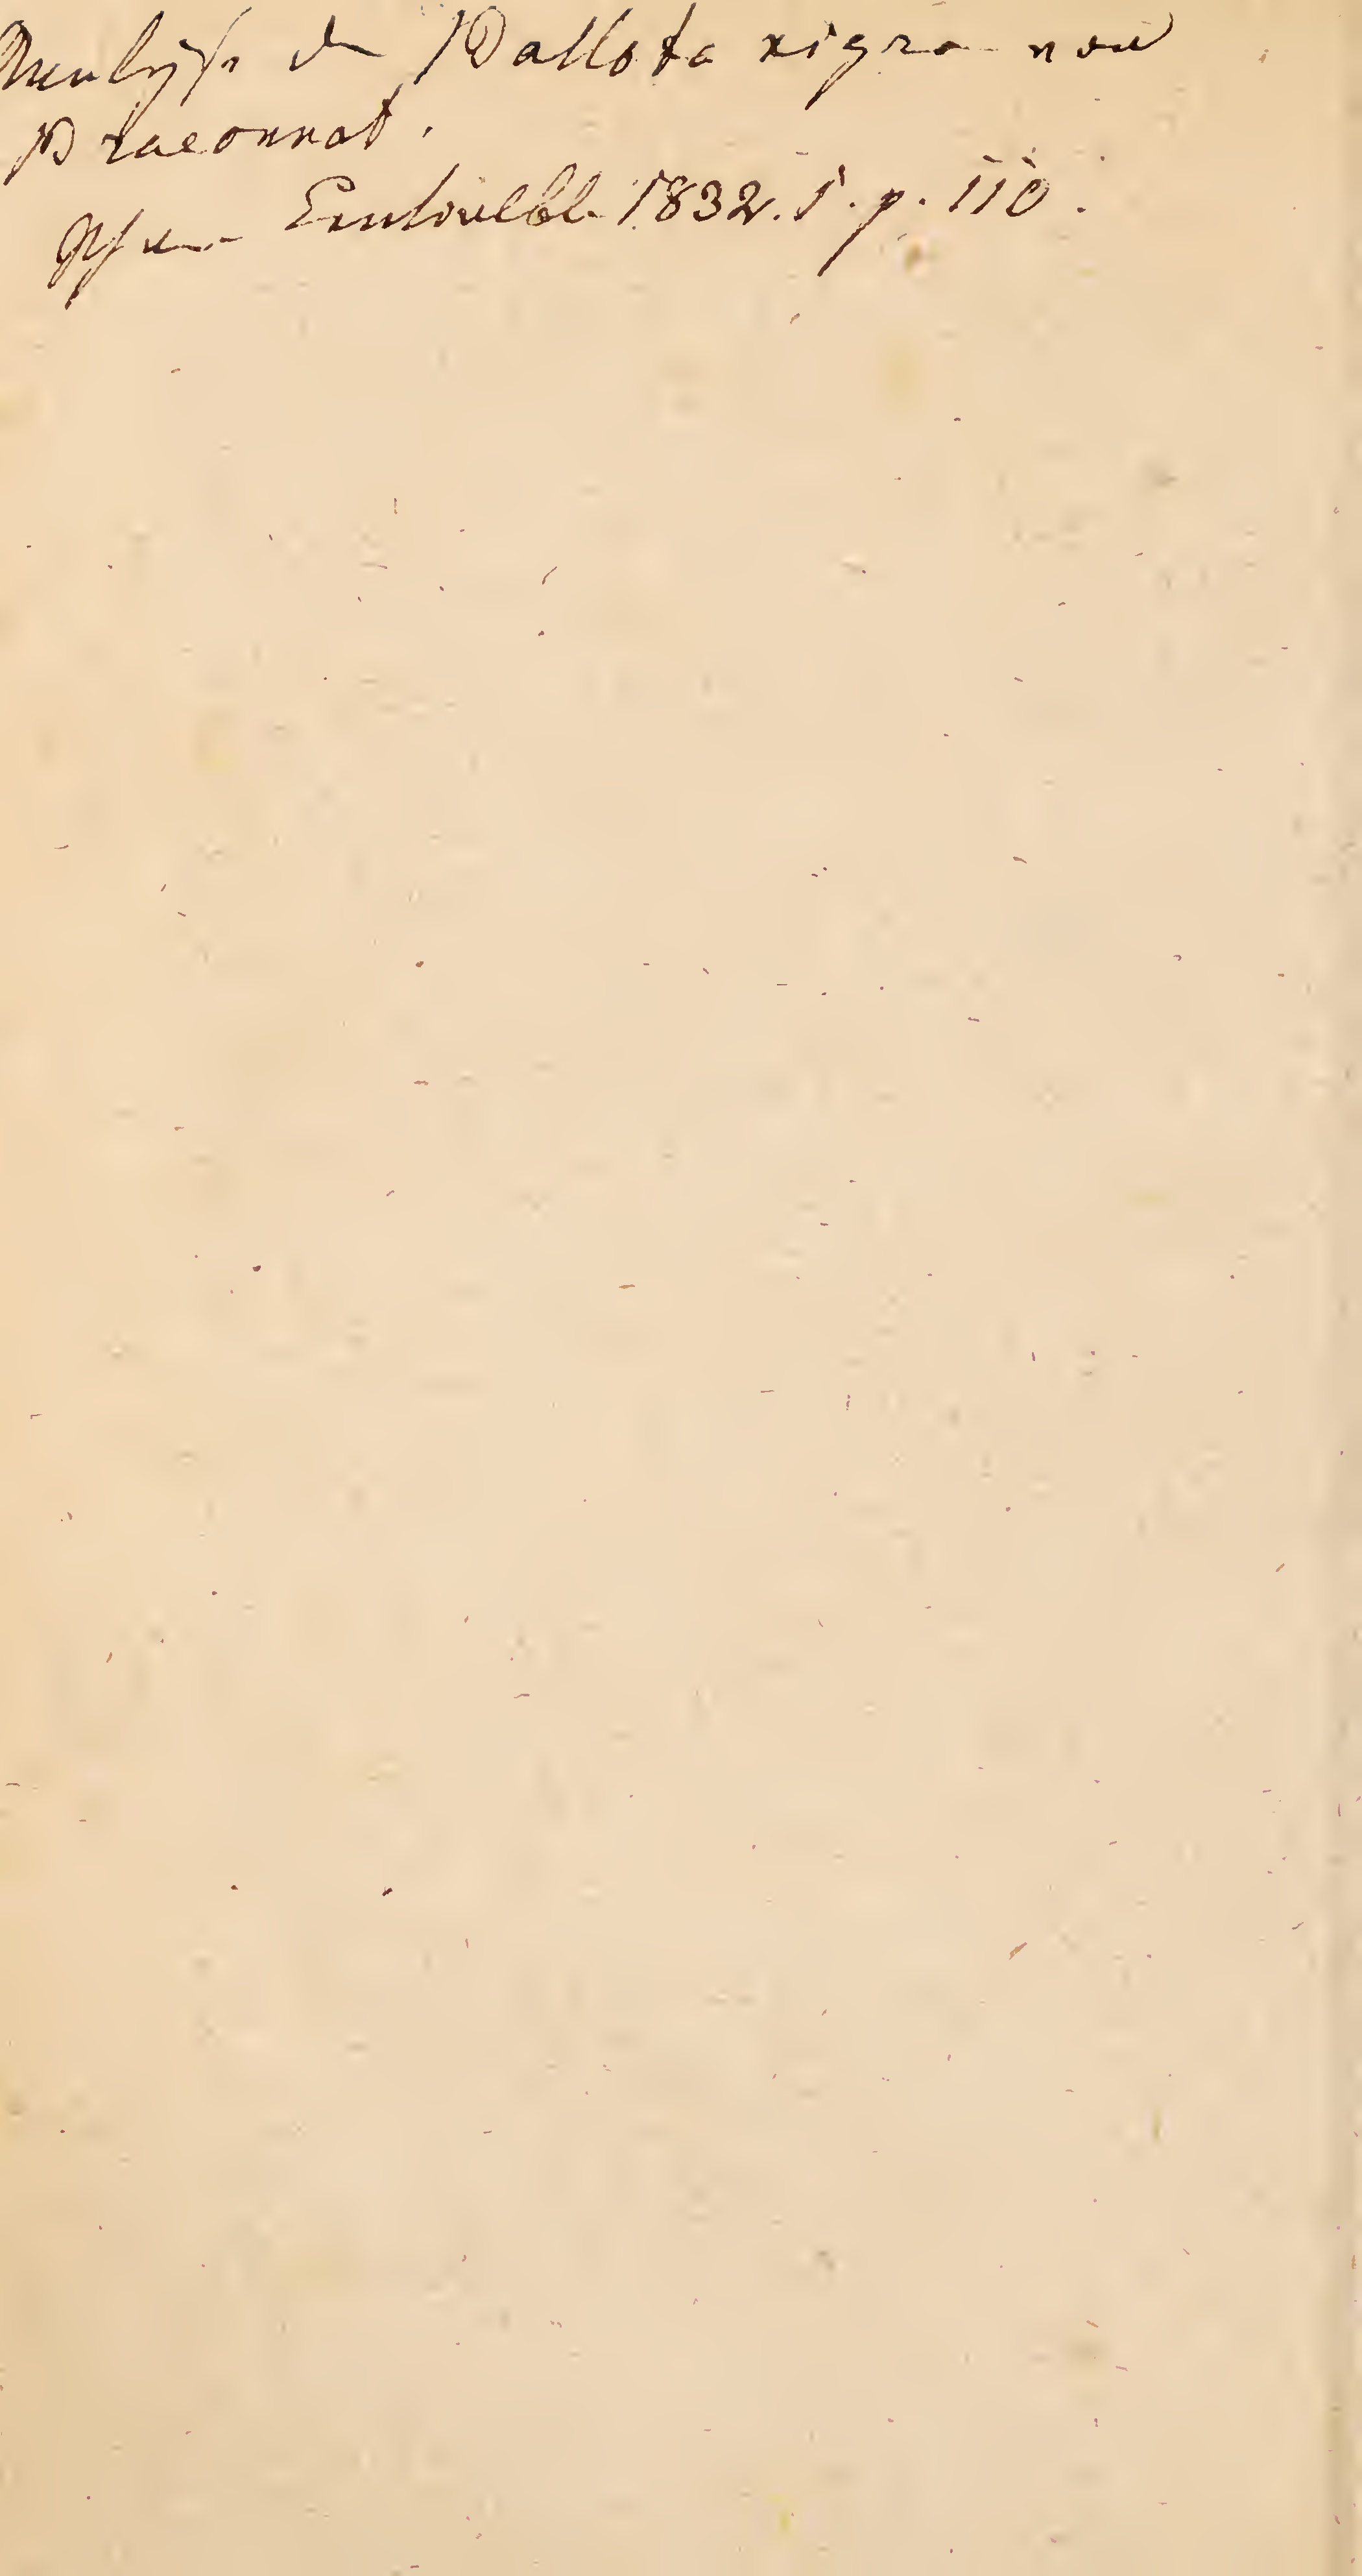 Analyse der Ballota nigra von
Braconnot.
Pharm. Centralbl. 1832. 1. p. 110.